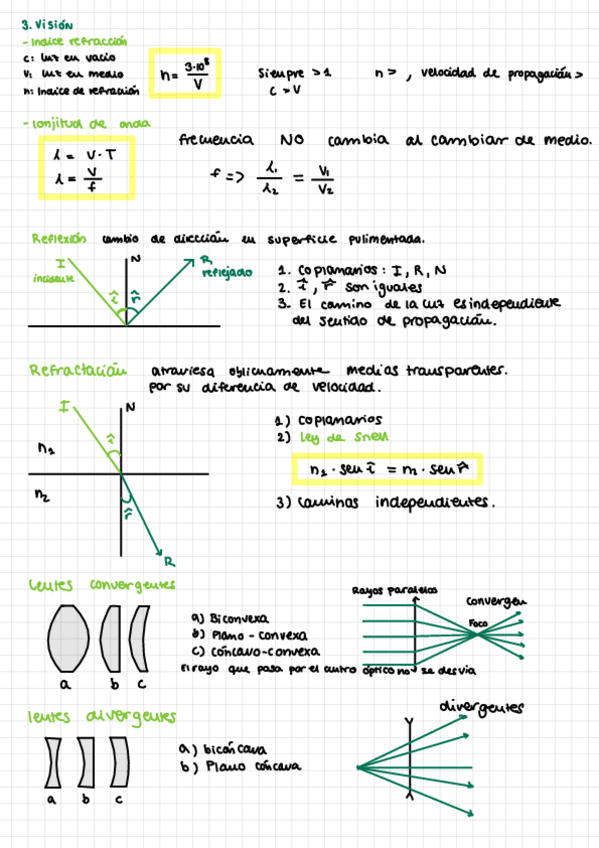 3. Visión
- Indice refracción
c: luz en vacio
v: luz en medio
n: Indice de refracción
n = 3·10⁸ / V
Siempre > 1
c > v
n > , velocidad de propagación >
- lonjitud de onda
λ = V · T
λ = V / f
frecuencia NO cambia al cambiar de medio.
f => λ₁ / λ₂ = V₁ / V₂
Reflexión cambio de dirección en superficie pulimentada.
I
incidente
N
R
reflejado
î
r̂
1. Coplanarios : I, R, N
2. î , r̂ son iguales
3. El camino de la luz es independiente
del sentido de propagación.
Refractación atraviesa oblicuamente medias transparentes.
por su diferencia de velocidad.
I
N
î
n₁
n₂
r̂
R
1) Coplanarios
2) ley de Snell
n₁ · sen î = n₂ · sen r̂
3) Caminas independientes.
lentes convergentes
a b c
a) Biconvexa
b) Plano - convexa
c) cóncavo-convexa
El rayo que pasa por el centro óptico no se desvia
Rayos paralelos
Convergen
Foco
lentes divergentes
a b c
a) bicóncava
b) Plano cóncava
divergentes